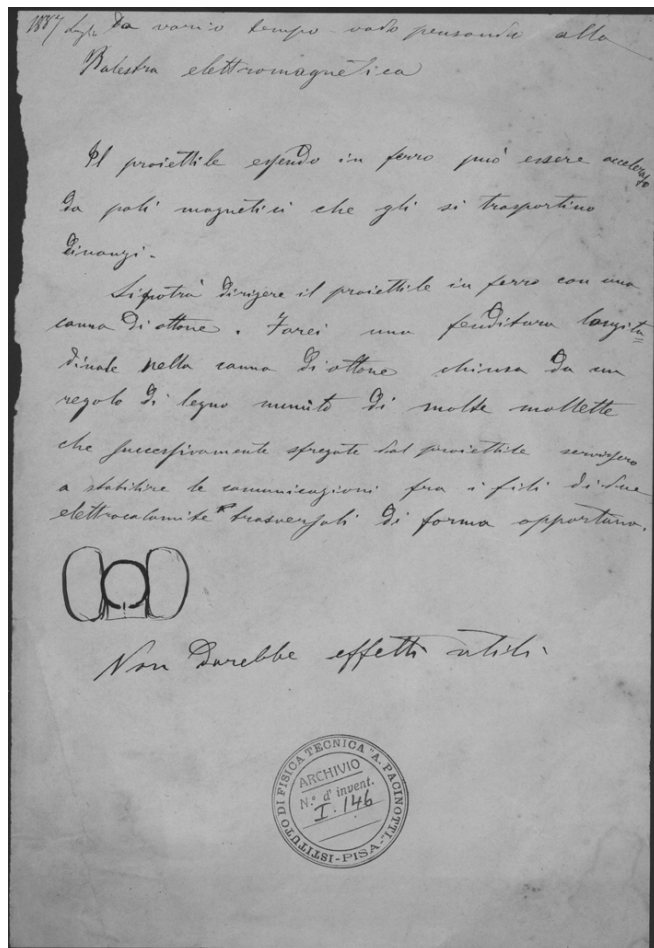 1887 luglio Da vario tempo vado pensando alla
Balestra elettromagnetica
Il proiettile essendo in ferro può essere accelerato
da poli magnetici che gli si trasportino
dinanzi.
Si potrà dirigere il proiettile in ferro con una
canna di ottone. Farei una fenditura longitu=
dinale nella canna di ottone chiusa da un
regolo di legno munito di molte mollette
che successivamente sfregate dal proiettile servissero
a stabilire le comunicazioni fra i fili di due
elettrocalamite trasversali di forma opportuna.
Non darebbe effetti utili.
ISTITUTO DI FISICA TECNICA "A. PACINOTTI" - PISA -
ARCHIVIO
N.° d'invent.
I. 146